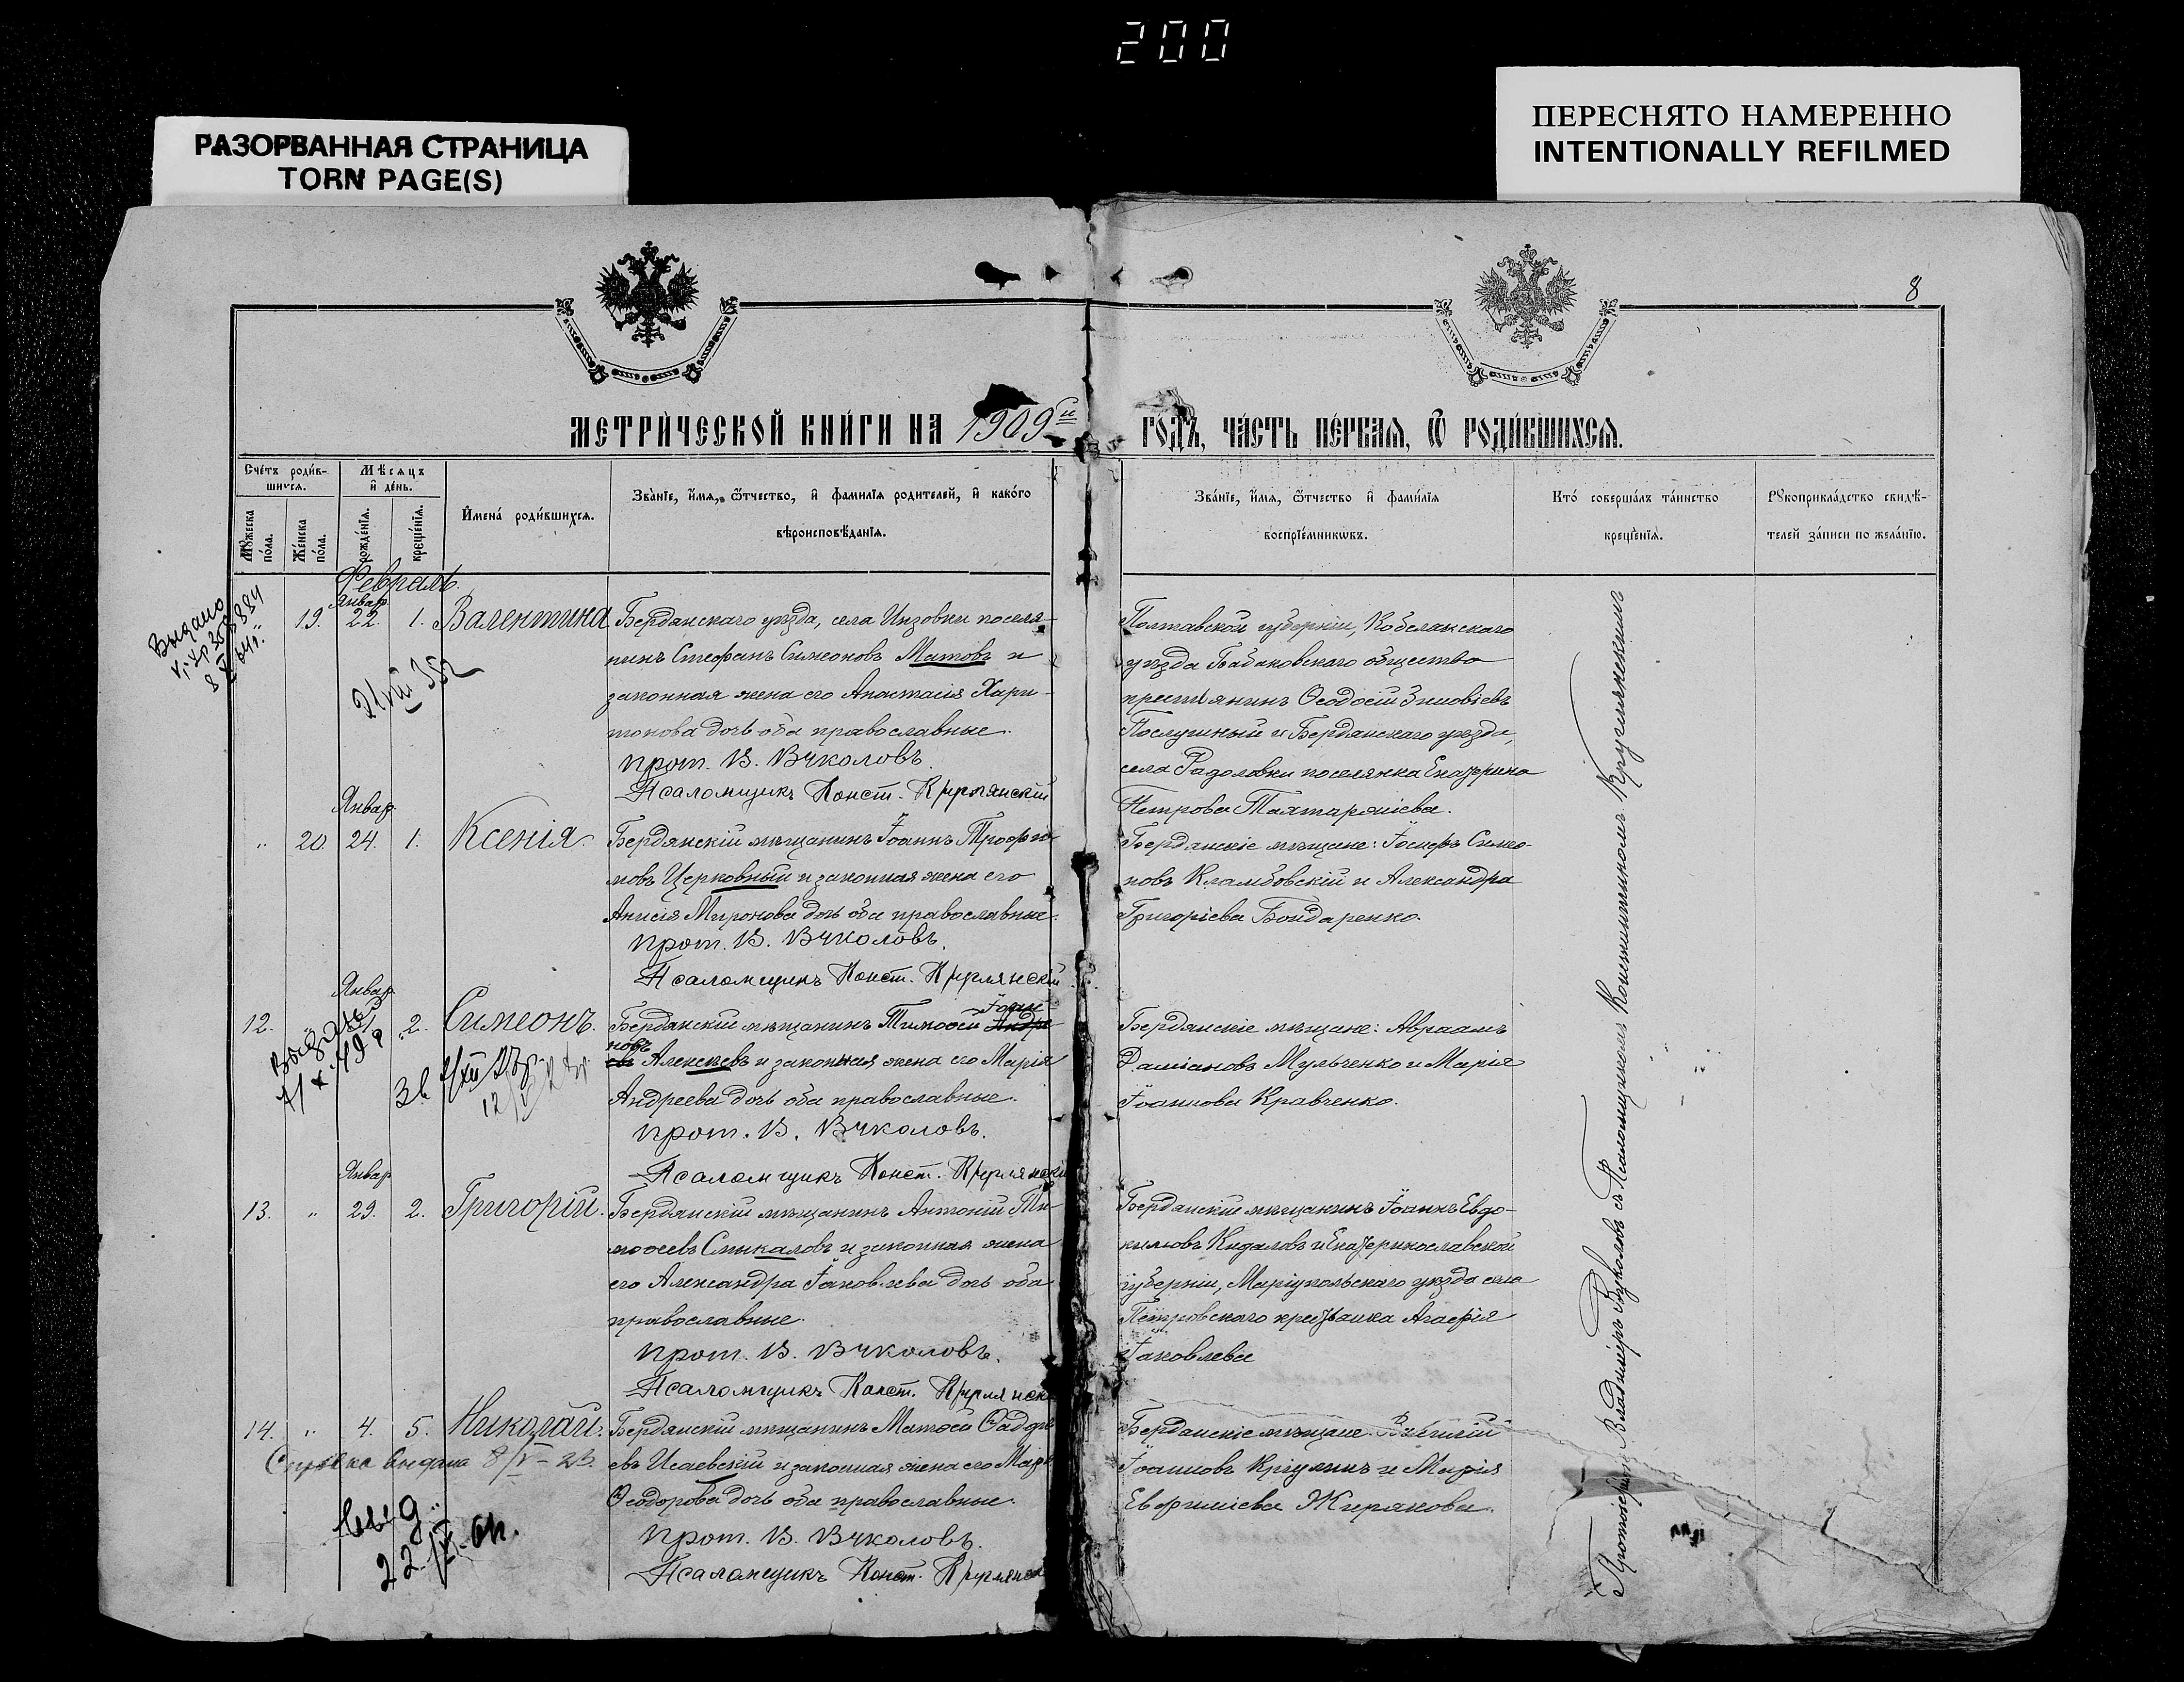 200
РАЗОРВАННАЯ СТРАНИЦА
TORN PAGE(S)
ПЕРЕСНЯТО НАМЕРЕННО
INTENTIONALLY REFILMED
8
МЕТРИЧЕСКОЙ КНИГИ НА 1909й ГОДЪ, ЧАСТЬ ПЕРВАЯ, Ѿ РОДИВШИХСЯ.
Счетъ родив-
шихся.
Мѣсяцъ
и день.
Мужеска пола.
Женска пола.
рожденія.
крещенія.
Имена родившихся.
Званіе, имя, ѿтчество, и фамилія родителей, и какого
вѣроисповѣданія.
Званіе, имя, ѿтчество и фамилія
воспріемниковъ.
Кто совершалъ таинство
крещенія.
Рукоприкладство свидѣ-
телей записи по желанію.
Февраль.
Январ.
" 19. 22. 1. Валентина
Бердянскаго уѣзда, села Инзовки поселя-
нинъ Стефанъ Симеоновъ Матовъ и
законная жена его Анастасія Хари-
тонова дочь оба православные.
Прот. В. Вуколовъ.
Псаломщикъ Конст. Круглянскій
Полтавской губерніи, Кобелякскаго
уѣзда Бабаковскаго общества
крестьянинъ Ѳеодосій Зиновіевъ
Послушный и Бердянскаго уѣзда,
села Радоловки поселянка Екатерина
Петрова
Выдано
Январ.
" 20. 24. 1. Ксенія.
Бердянскій мѣщанинъ Іоаннъ Трофи-
мовъ Церковный и законная жена его
Анисія Миронова дочь оба православные.
Прот. В. Вуколовъ.
Псаломщикъ Конст. Круглянскій
Бердянскіе мѣщане: Іосифъ Симео-
новъ Кламбовскій и Александра
Григоріева Бондаренко.
Январ.
12. 2. Симеонъ.
Бердянскій мѣщанинъ Тимоѳей Іоан-
новъ Алексѣевъ и законная жена его Марія
Андреева дочь оба православные.
Прот. В. Вуколовъ.
Псаломщикъ Конст. Круглянскій
Бердянскіе мѣщане: Авраамъ
Даміановъ Мульченко и Марія
Іоаннова Кравченко.
Январ
13. " 29. 2. Григорій.
Бердянскій мѣщанинъ Антоній Ти-
моѳеевъ Смыкаловъ и законная жена
его Александра Іаковлева дочь оба
православные.
Прот. В. Вуколовъ.
Псаломщикъ Конст. Круглянск
Бердянскій мѣщанинъ Іоаннъ Евдо-
кимовъ Кидаловъ и Екатеринославской
губерніи, Маріупольскаго уѣзда села
Петровскаго крестьянка Агафія
Іаковлева
14. " 4. 5. Николай.
Бердянскій мѣщанинъ Матѳей Ѳаддѣе-
евъ Исаевскій и законная жена его Марія
Ѳеодорова дочь оба православные.
Прот. В. Вуколовъ.
Псаломщикъ Конст. Круглянск
Справка выдана 8/V-23.
выд.
Бердянскіе мѣщане: Василій
Іоанновъ и Марія
Евфиміева Жирякова.
Протоіерей Владиміръ Вуколовъ съ Псаломщикомъ Константиномъ Круглянскимъ